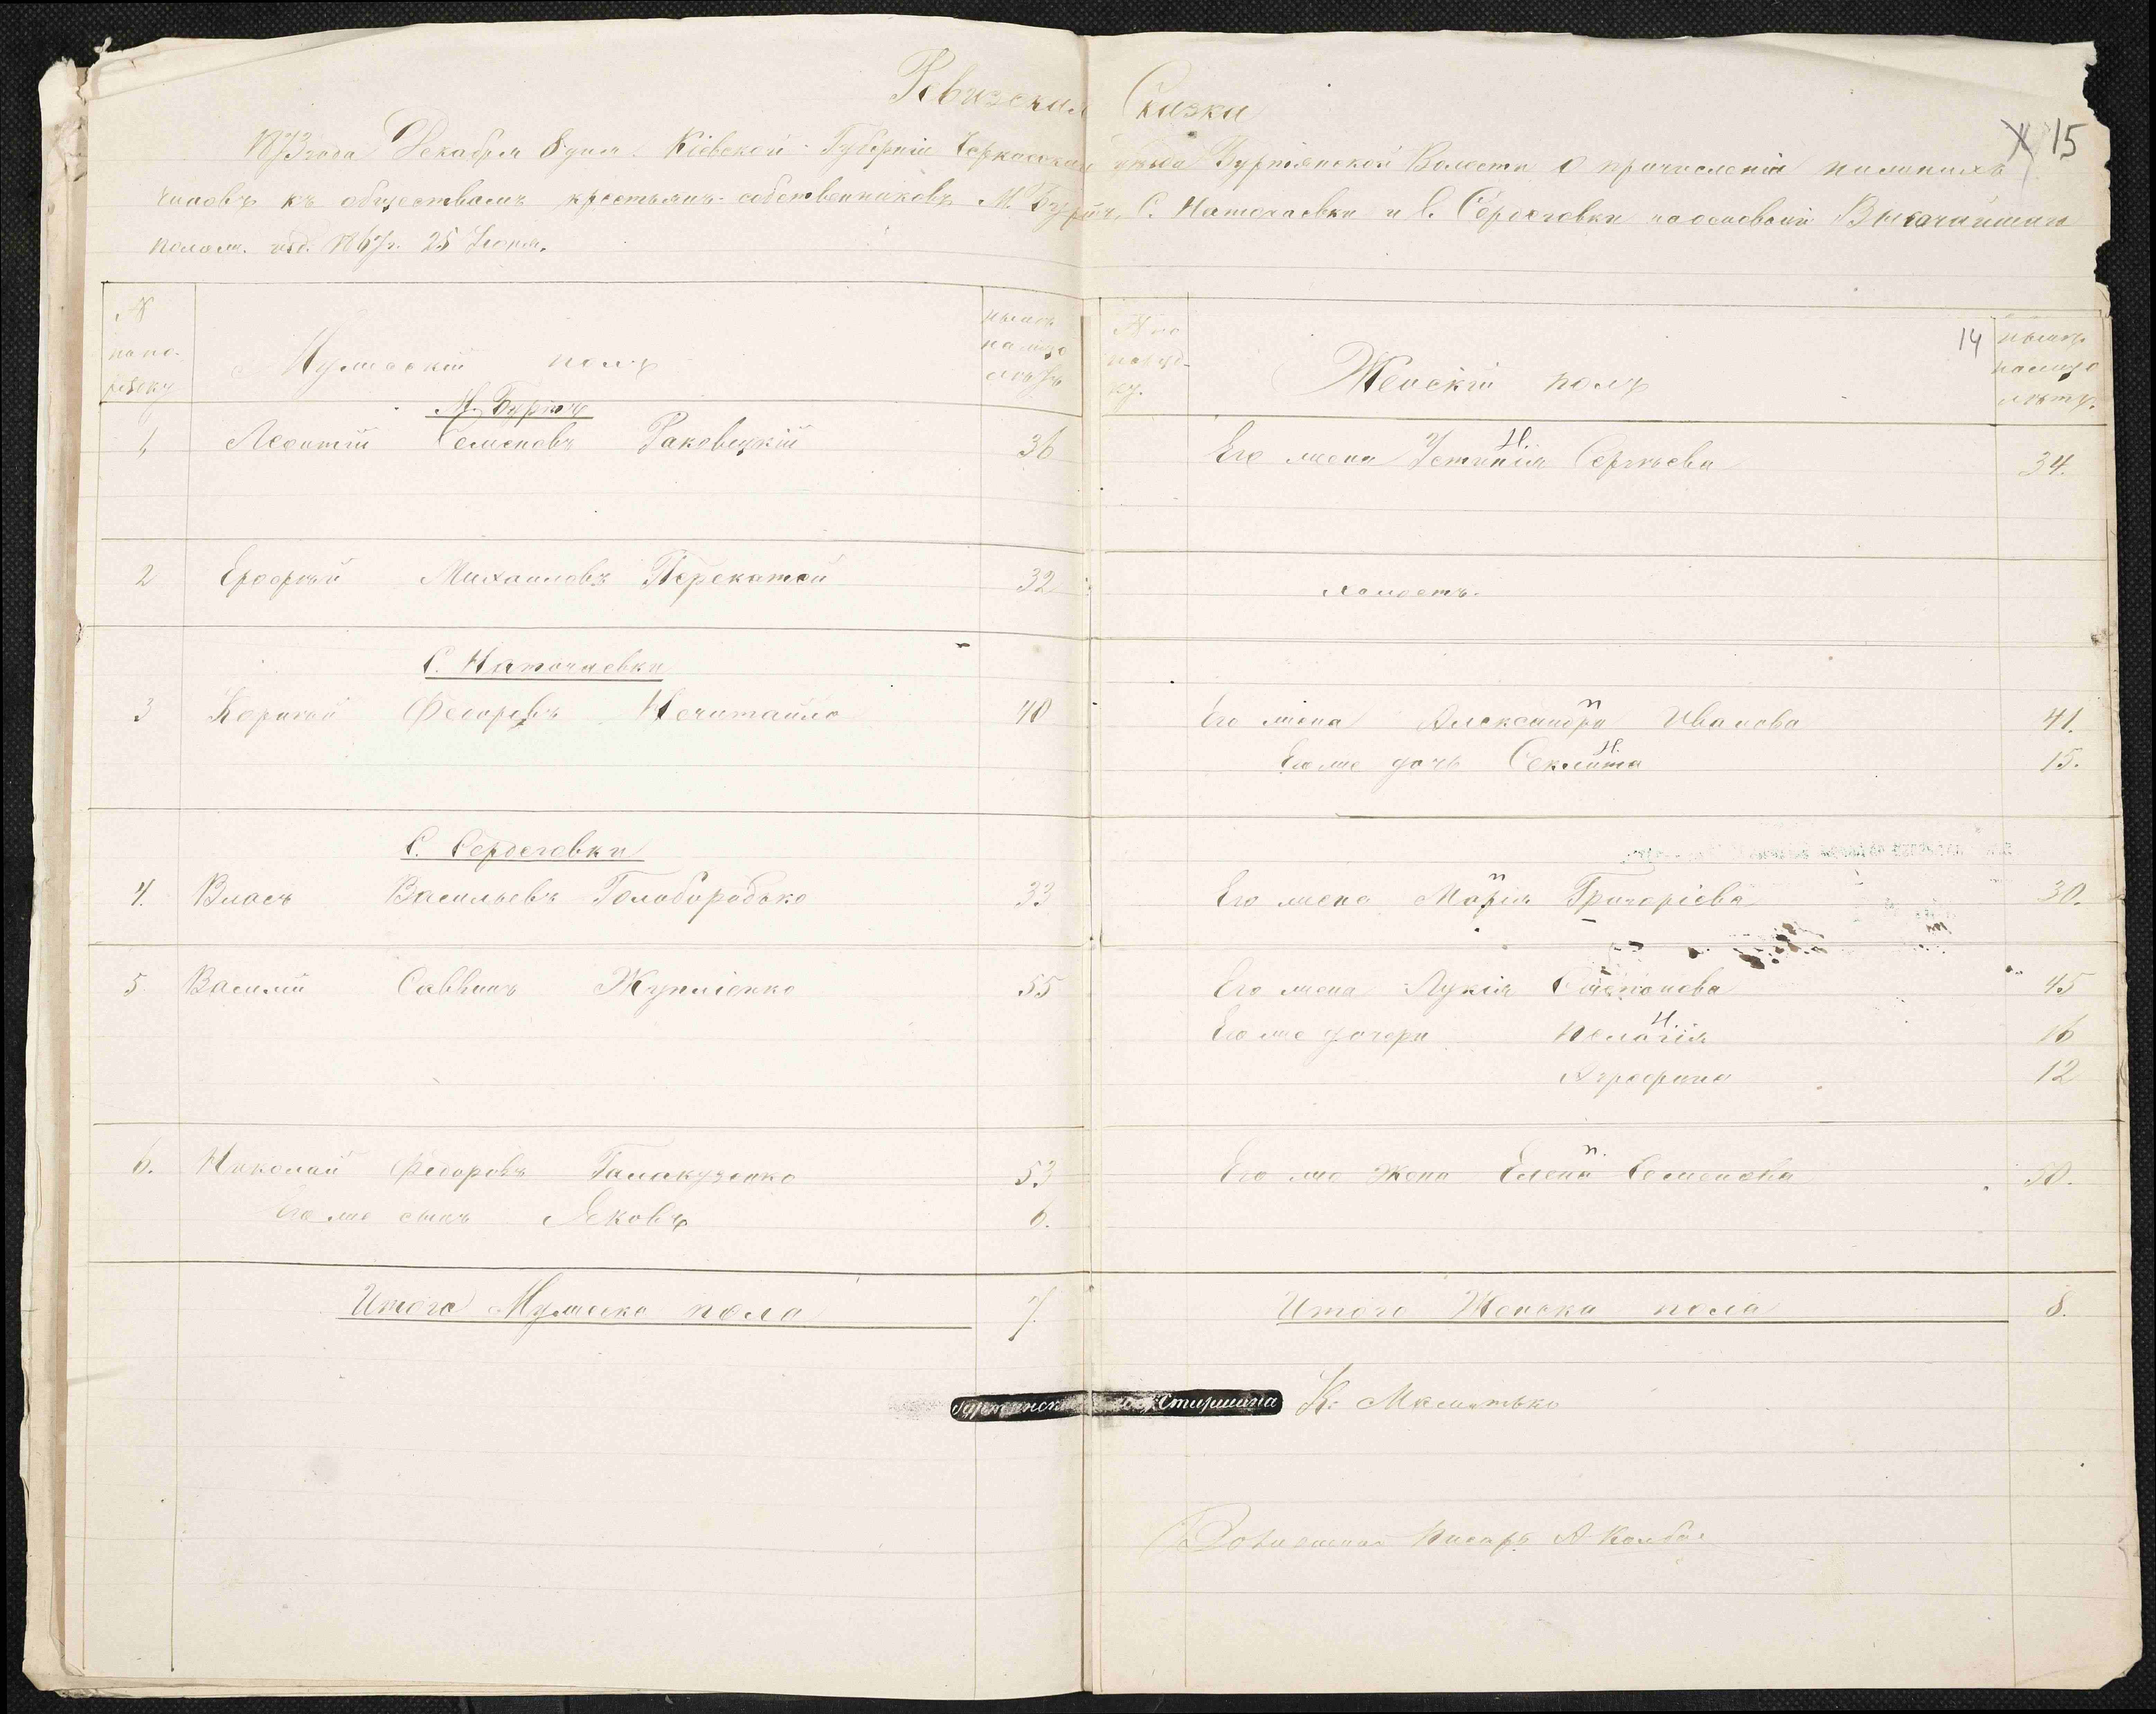 Ревизская Сказка
1873 года Декабря 8 дня Кіевской Губерніи Черкаскаго уѣзда Буртянской Волости О причисленіи нижнихъ
чиновъ къ обществамъ крестьянъ-собственниковъ М. Буртъ, С. Наточаевки и С. Сердеговки на основаніи Высочайшаго
Полож. изд. 1867 г. 25 Іюня.
15
14
№ по по-рядку
Мужескій полъ
нынѣ на лицо лѣтъ
№ по поряд-ку.
Женскій полъ
нынѣ на лицо лѣтъ.
М. Буртъ
1, Леонтій Семеновъ Раковецкій 36
Его жена Устинія Н. Сергѣева 34.
2 Ерофѣй Михаиловъ Перекотой 32
холостъ.
С. Наточаевки
3 Корнѣй Федоровъ Нечитайло 40
Его жена Александра п Иванова 41.
Его же дочь Секлита Н. 15.
С. Сердеговки
4. Власъ Васильевъ Голобородько 33
Его жена Марія п Григоріева 30.
5 Василій Саввинъ 55
Его жена Лукія Степанова 45
Его же дочери Пелагія Н. 16
Агрофина 12
6. Николай Федоровъ 53
Его же жена Елена п. Семенова 50.
Его же сынъ Яковъ 6.
Итого Мужеска пола 7.
Итого Женска пола 8.
Буртянский Вол. Старшина К.
Писарь А